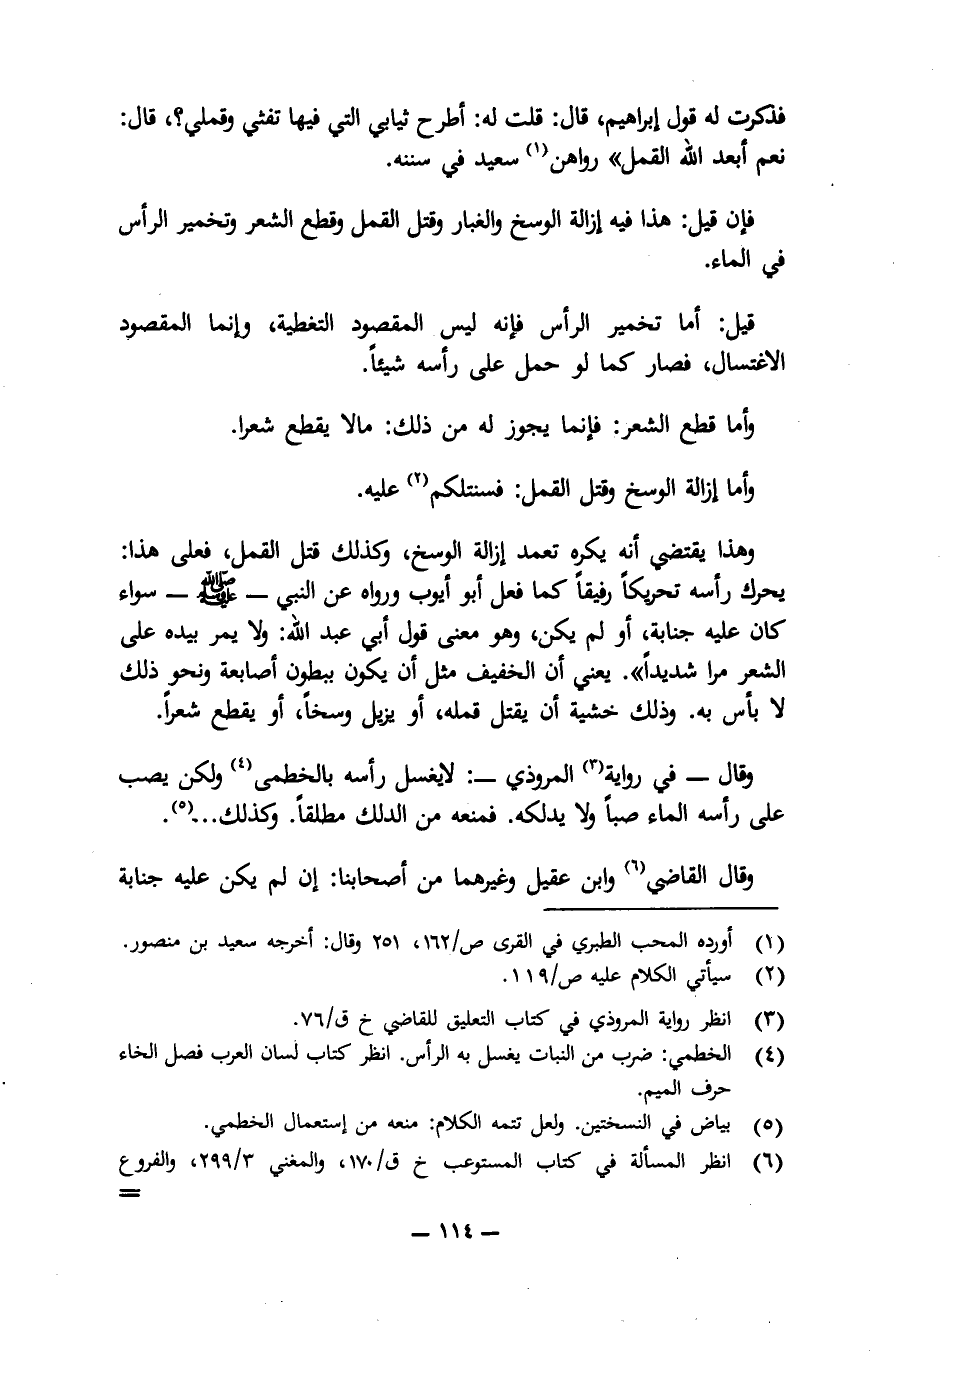 فذكرت له قول إبراهيم، قال: قلت له: أطرح ثيابي التي فيها تفثي وقملي؟، قال:
نعم أبعد الله القمل» رواهن(١) سعيد في سننه.
فإن قيل: هذا فيه إزالة الوسخ والغبار وقتل القمل وقطع الشعر وتخمير الرأس
في الماء.
قيل: أما تخمير الرأس فإنه ليس المقصود التغطية، وإنما المقصود
الاغتسال، فصار كما لو حمل على رأسه شيئاً.
وأما قطع الشعر: فإنما يجوز له من ذلك: مالا يقطع شعرا.
وأما إزالة الوسخ وقتل القمل: فسنتلكم(٢) عليه.
وهذا يقتضي أنه يكره تعمد إزالة الوسخ، وكذلك قتل القمل، فعلى هذا:
يحرك رأسه تحريكاً رفيقاً كما فعل أبو أيوب ورواه عن النبي — ﷺ — سواء
كان عليه جنابة، أو لم يكن، وهو معنى قول أبي عبد الله: ولا يمر بيده على
الشعر مرا شديداً». يعني أن الخفيف مثل أن يكون ببطون أصابعة ونحو ذلك
لا بأس به. وذلك خشية أن يقتل قمله، أو يزيل وسخاً، أو يقطع شعراً.
وقال — في رواية(٣) المروذي —: لايغسل رأسه بالخطمى(٤) ولكن يصب
على رأسه الماء صباً ولا يدلكه. فمنعه من الدلك مطلقاً. وكذلك...(٥).
وقال القاضي(٦) وابن عقيل وغيرهما من أصحابنا: إن لم يكن عليه جنابة
(١) أورده المحب الطبري في القرى ص/١٦٢، ٢٥١ وقال: أخرجه سعيد بن منصور.
(٢) سيأتي الكلام عليه ص/١١٩.
(٣) انظر رواية المروذي في كتاب التعليق للقاضي خ ق/٧٦.
(٤) الخطمي: ضرب من النبات يغسل به الرأس. انظر كتاب لسان العرب فصل الخاء
حرف الميم.
(٥) بياض في النسختين. ولعل تتمه الكلام: منعه من إستعمال الخطمي.
(٦) انظر المسألة في كتاب المستوعب خ ق/١٧٠، والمغني ٢٩٩/٣، والفروع
=
— ١١٤ —